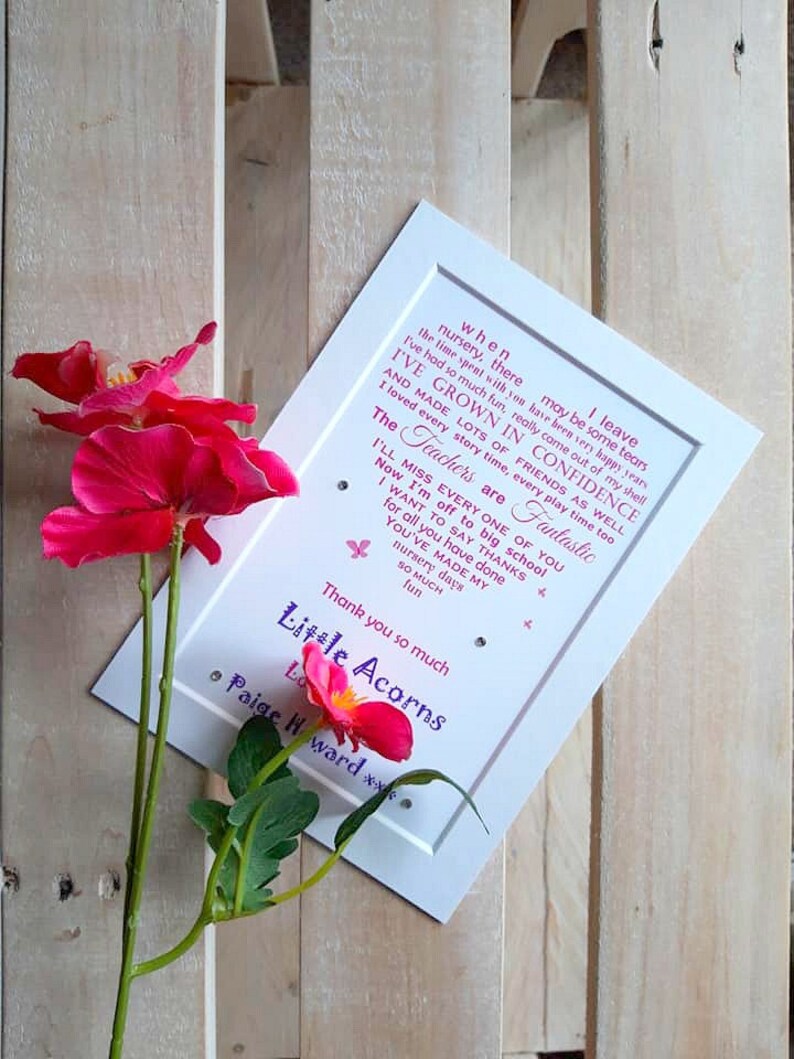 when I leave
nursery, there may be some tears
the time spent with you have been very happy years
I've had so much fun, really come out of my shell
I'VE GROWN IN CONFIDENCE
AND MADE LOTS OF FRIENDS AS WELL
I loved every story time, every play time too
The Teachers are Fantastic
I'LL MISS EVERY ONE OF YOU
Now I'm off to big school
I WANT TO SAY THANKS
for all you have done
YOU'VE MADE MY
nursery days
SO MUCH
fun
Thank you so much
Little Acorns
Paige Howard xxx